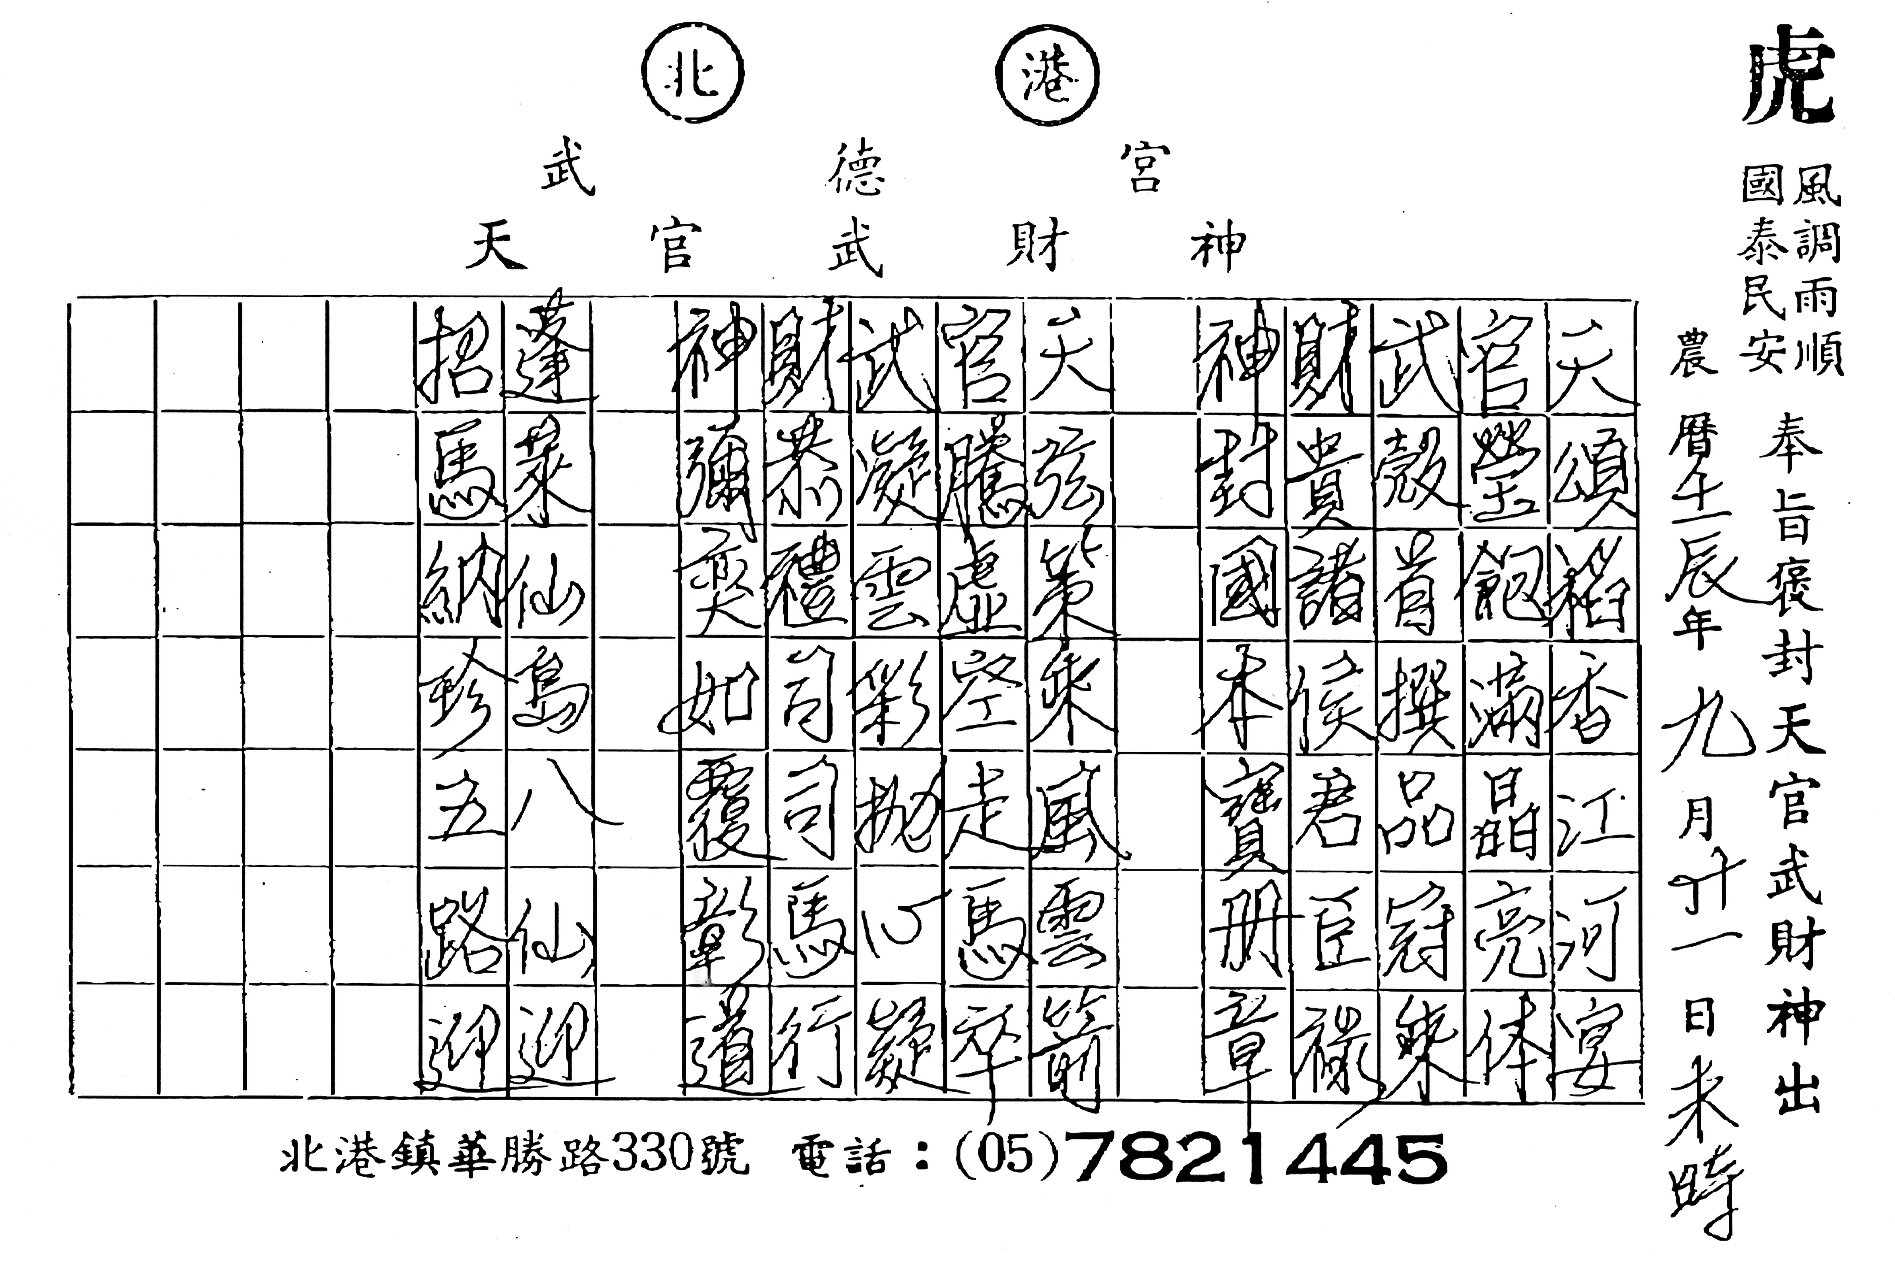 北港
武德宮
天官武財神
虎
風調雨順
國泰民安
奉旨褒封天官武財神出
農曆壬辰年九月廿一日未時
天頌稻香江河宴
官瑩飽滿晶亮体
武殼首撰品冠乘
財貴諸侯君臣祿
神封國本寶册章
天弦策乘風雲箭
官騰虛空走馬卒
武凝雲彩拋心疑
財恭禮司司馬行
神彌奕如覆彰道
蓬萊仙島八仙迎
招馬納珍五路迎
北港鎮華勝路330號 電話：(05)7821445